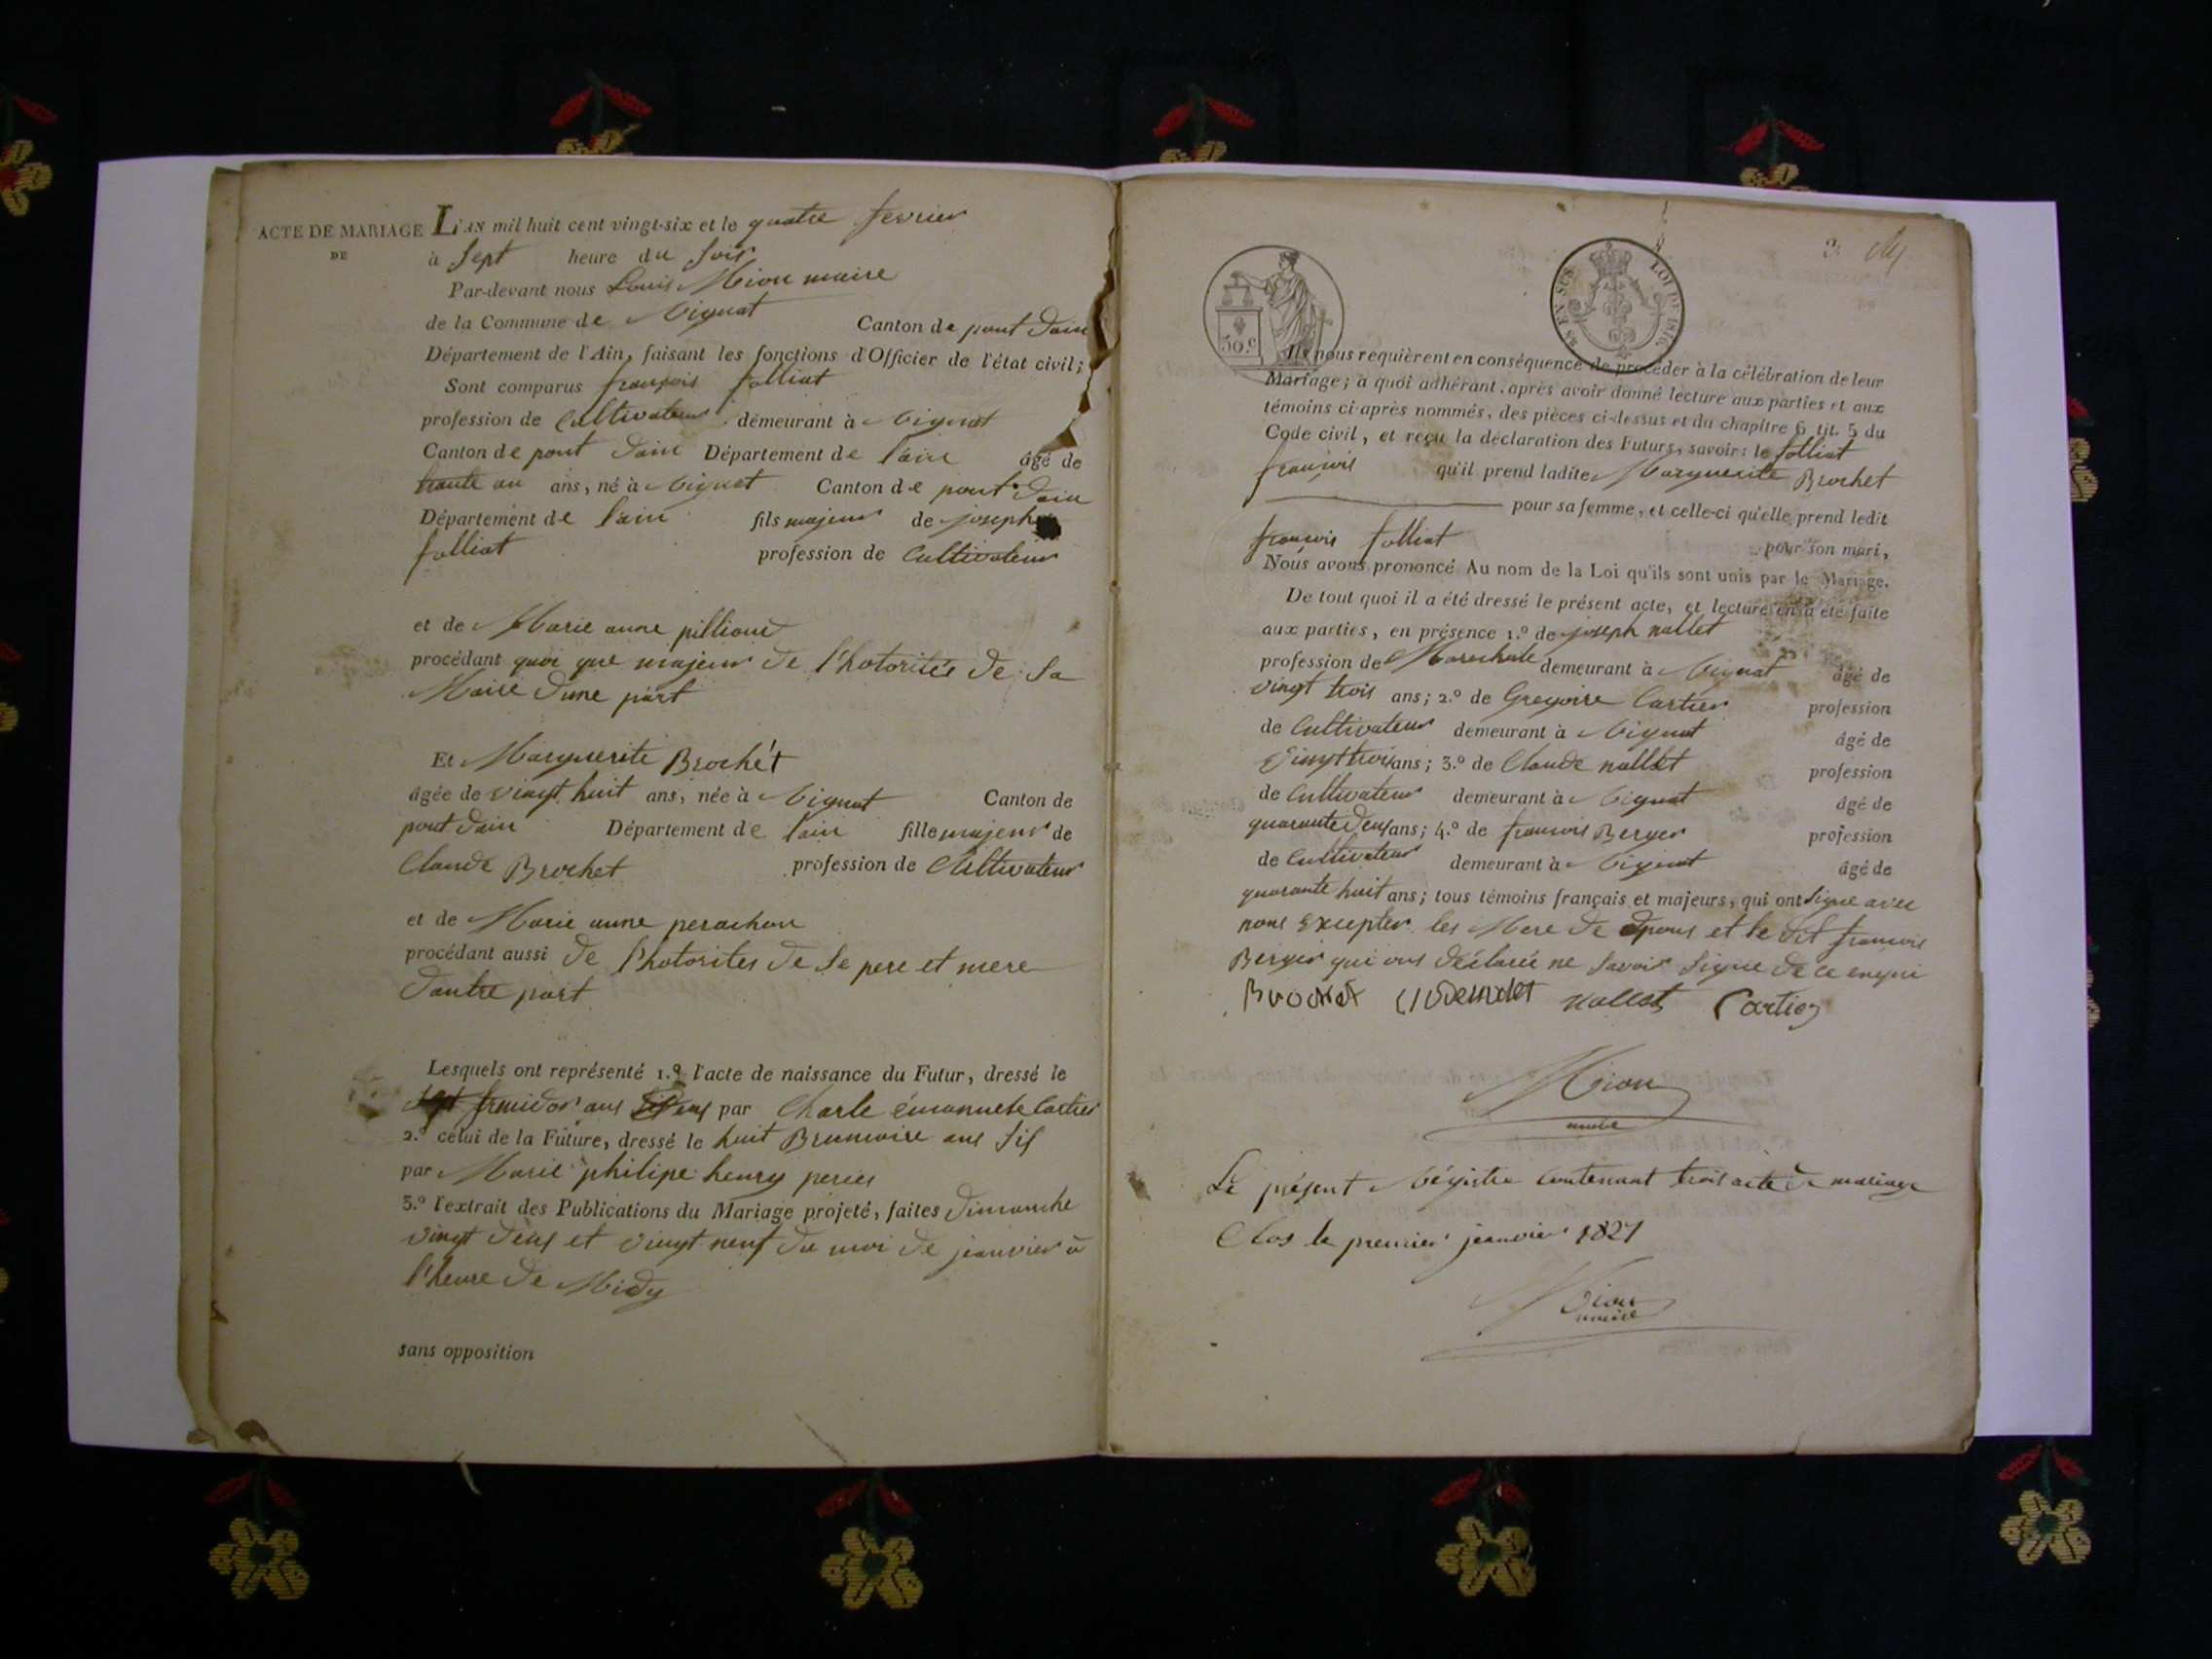 ACTE DE MARIAGE
DE
L'AN mil huit cent vingt-six et le quatre fevrier
à sept heure du soir
Par-devant nous Louis Mion maire
de la Commune de Vignat Canton de pont dain
Département de l'Ain, faisant les fonctions d'Officier de l'état civil;
Sont comparus françois folliat
profession de Cultivateur demeurant à Vignat
Canton de pont dain Département de lain âgé de
trante un ans, né à Vignat Canton de pont dain
Département de lain fils majeur de joseph
folliat profession de Cultivateur
et de Marie anne pilliou
procédant quoi que majeur de l'hotorités de sa
Maire dune part
Et Marguerite Brochet
âgée de vingt huit ans, née à Vignat Canton de
pont dain Département de lain fille majeur de
Claude Brochet profession de Cultivateur
et de Marie anne perachon
procédant aussi de l'hotorites de se pere et mere
dautre part
Lesquels ont représenté 1.º l'acte de naissance du Futur, dressé le
fruidor ans par Charle émanuele Cartier
2.º celui de la Future, dressé le huit Brumaire ans sis
par Marie philipe henry
3.º l'extrait des Publications du Mariage projeté, faites dimanche
vingt deus et vingt neuf du moi de jeanvier à
l'heure de Midy
sans opposition
3.
30.c
EN SUS LOI DE 1816
Ils nous requièrent en conséquence de procéder à la célébration de leur
Mariage; à quoi adhérant, après avoir donné lecture aux parties et aux
témoins ci-après nommés, des pièces ci-dessus et du chapitre 6 tit. 5 du
Code civil, et reçu la déclaration des Futurs, savoir: le folliat
françois qu'il prend ladite Marguerite Brochet
pour sa femme, et celle-ci qu'elle prend ledit
francois folliat pour son mari,
Nous avons prononcé Au nom de la Loi qu'ils sont unis par le Mariage.
De tout quoi il a été dressé le présent acte, et lecture en a été faite
aux parties, en présence 1.º de joseph nallet
profession de Marechale demeurant à Vignat âgé de
vingt trois ans; 2.º de Gregoire Cartier profession
de Cultivateur demeurant à Vignat âgé de
vingt trois ans; 3.º de Claude nallet profession
de Cultivateur demeurant à Vignat âgé de
quarante deus ans; 4.º de francois Berger profession
de Cultivateur demeurant à Vignat âgé de
quarante huit ans; tous témoins français et majeurs, qui ont signe avec
nous Excepter les Mere de Epous et le dit francois
Berger qui ons déclaréé ne savoir signe de ce enqui
Brochet nallet Cartier
Mion
maire
Le présent Régistre Contenant trois acte de mariage
Clos le premier jeanvier 1827
Mion
maire